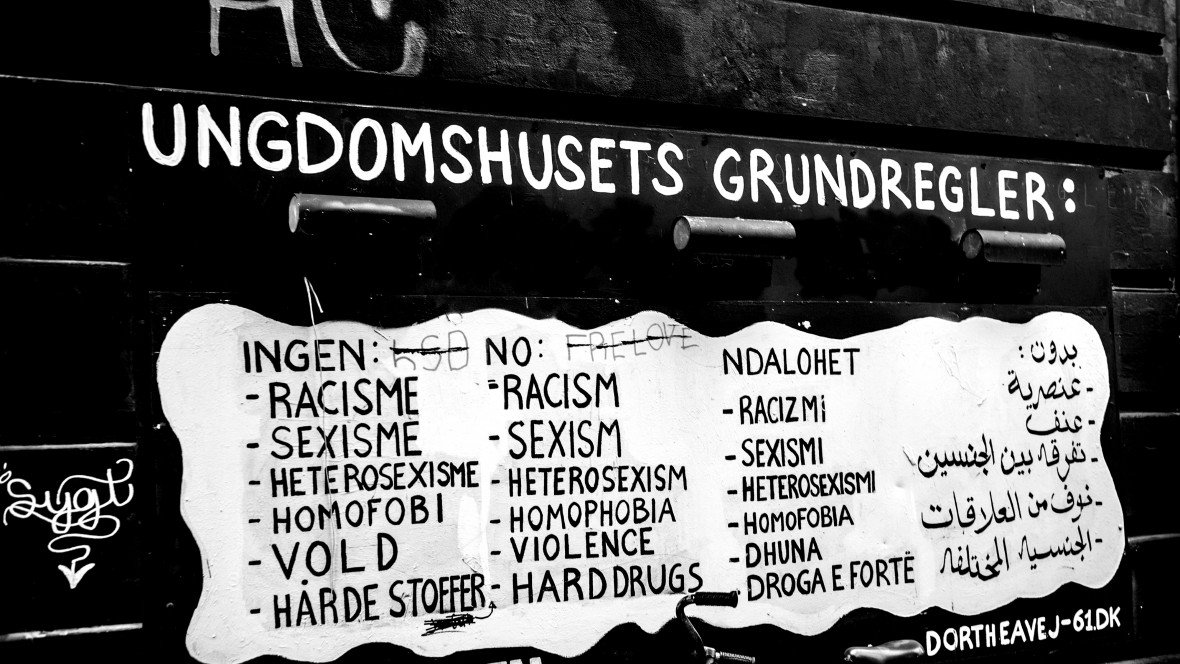 UNGDOMSHUSETS GRUNDREGLER:
INGEN:
- RACISME
- SEXISME
- HETEROSEXISME
- HOMOFOBI
- VOLD
- HÅRDE STOFFER
NO: FREE LOVE
- RACISM
- SEXISM
- HETEROSEXISM
- HOMOPHOBIA
- VIOLENCE
- HARD DRUGS
NDALOHET
- RACIZMi
- SEXISMI
- HETEROSEXISMI
- HOMOFOBIA
- DHUNA
- DROGA E FORTË
بدون:
- عنصرية
- عنف
- تفرقه بين الجنسين
- خوف من العلاقات
- الجنسيه المختلفه
DORTHEAVEJ-61.DK
Sygt